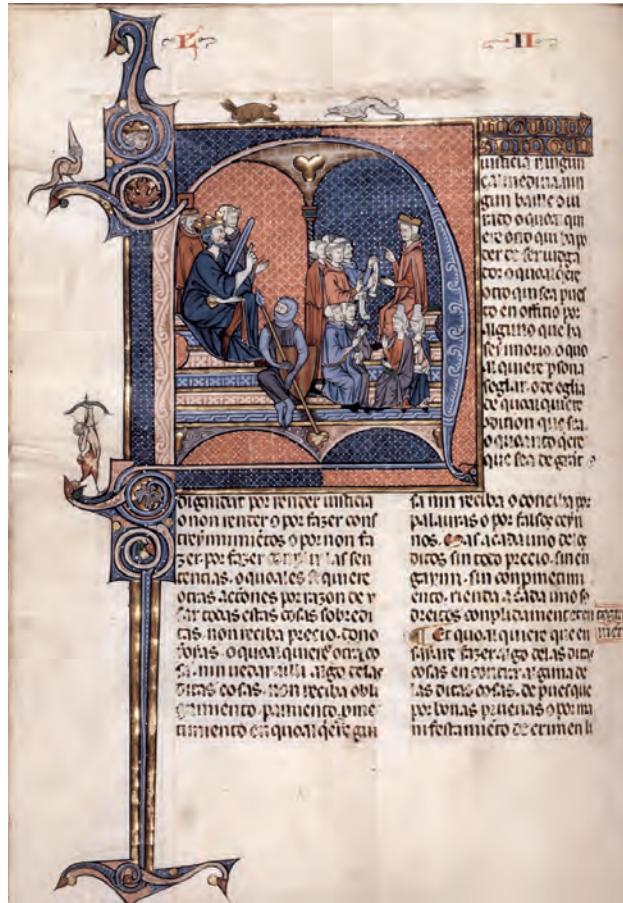 L II
iusticia nin gun
çalmedina nin
gun baille o iu
rado o quoal qui
ere otro qui ha po
der de ser iudga
dor o quoal qẽre
otro qui sea pues
to en officio por
alguno que ha
seynnorio. o quo
al quiere psona
seglar. o de eglia
de quoal quiere
dition que sea.
o quanto qẽre
que sea de grãt
dignidat por render iusticia
o non render o por fazer cons
treynnimientos o por non fa
zer. por fazer las sen
tencias. o quoales se quiere
otras actiones por razon de y
sar todas estas cosas sobredi
tas. non reciba precio. dono
o quoal quiere otra co
sa. nin uedar ailli algo delas
ditas cosas. non reciba obli
gamiento. paramiento. pme
timiento en quoal qẽre gui
sa nin reciba o conciba por
palauras o por falsos ceyn
nos. Mas a cada uno delos
ditos sin todo precio. sin en
gaynno. sin conpmetimi
ento. rienda a cada uno so
dreitos complidament et en
Et quoal quiere que en
sayare fazer algo delas ditas
cosas en contra alguna de
las ditas cosas. de pues que
por bonas prueuas o por ma
nifestamiẽto de crimen li